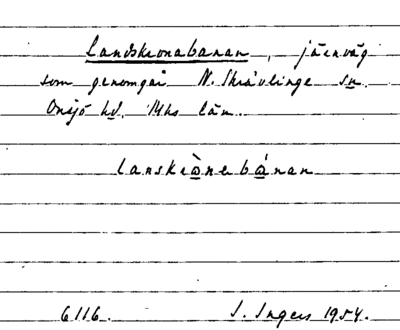 Landskronabanan, järnväg
som genomgår N. Skrävlinge sn.
Onsjö hd. Mhs län.
lanskrònebánan
6116. I. Ingers 1954.